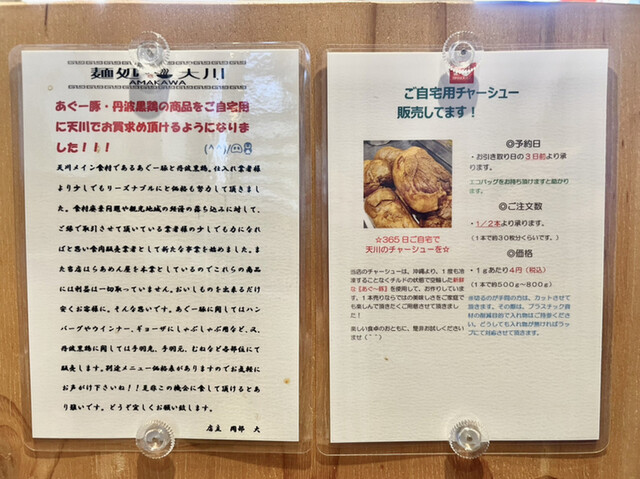 麺処 天川
AMAKAWA
あぐー豚・丹波黒鶏の商品をご自宅用
に天川でお買求め頂けるようになりま
した!!! (^^)/
天川メイン食材であるあぐー豚と丹波黒鶏。仕入れ業者様
より少しでもリーズナブルにと価格も努力して頂きまし
た。食材廃棄問題や観光地域の経済の落ち込みに対して、
ご縁で取引させて頂いている業者様の少しでも力になれ
ばと思い食肉販売業者として新たな事業を始めました。ま
た当店はらあめん屋を本業としているのでこれらの商品
には利益は一切取っていません。おいしものを出来るだけ
安くお客様に。そんな思いです。あぐー豚に関してはハン
バーグやウインナー、ギョーザにしゃぶしゃぶ用など、又、
丹波黒鶏に関しては手羽先、手羽元、むねなど各部位にて
販売します。別途メニュー価格表がありますのでお気軽に
お声がけ下さいね!!是非この機会に食して頂けるとあ
り難いです。どうぞ宜しくお願い致します。
店主 岡部 大
ご自宅用チャーシュー
販売してます!
☆365日ご自宅で
天川のチャーシューを☆
当店のチャーシューは、沖縄より、1度も冷
凍することなくチルドの状態で空輸した新鮮
な【あぐ~豚】を使用して、お作りしていま
す。1本売りならではの美味しさをご家庭で
も楽しんで頂きたくご用意させて頂きまし
た!
楽しい食卓のおともに、是非お試しください
ませ(^^)
◎予約日
・お引き取り日の3日前より承
ります。
エコバッグをお持ち頂けますと助かり
ます。
◎ご注文数
・1/2本より承ります。
(1本で約30枚分くらいです。)
◎価格
・1gあたり4円(税込)
(1本で約500g~800g)
※切るのが手間の方は、カットさせて
頂きます。その際は、プラスチック資
材の削減目的で入れ物はご持参くださ
い。どうしても入れ物が無ければラッ
プにて対応させて頂きます。